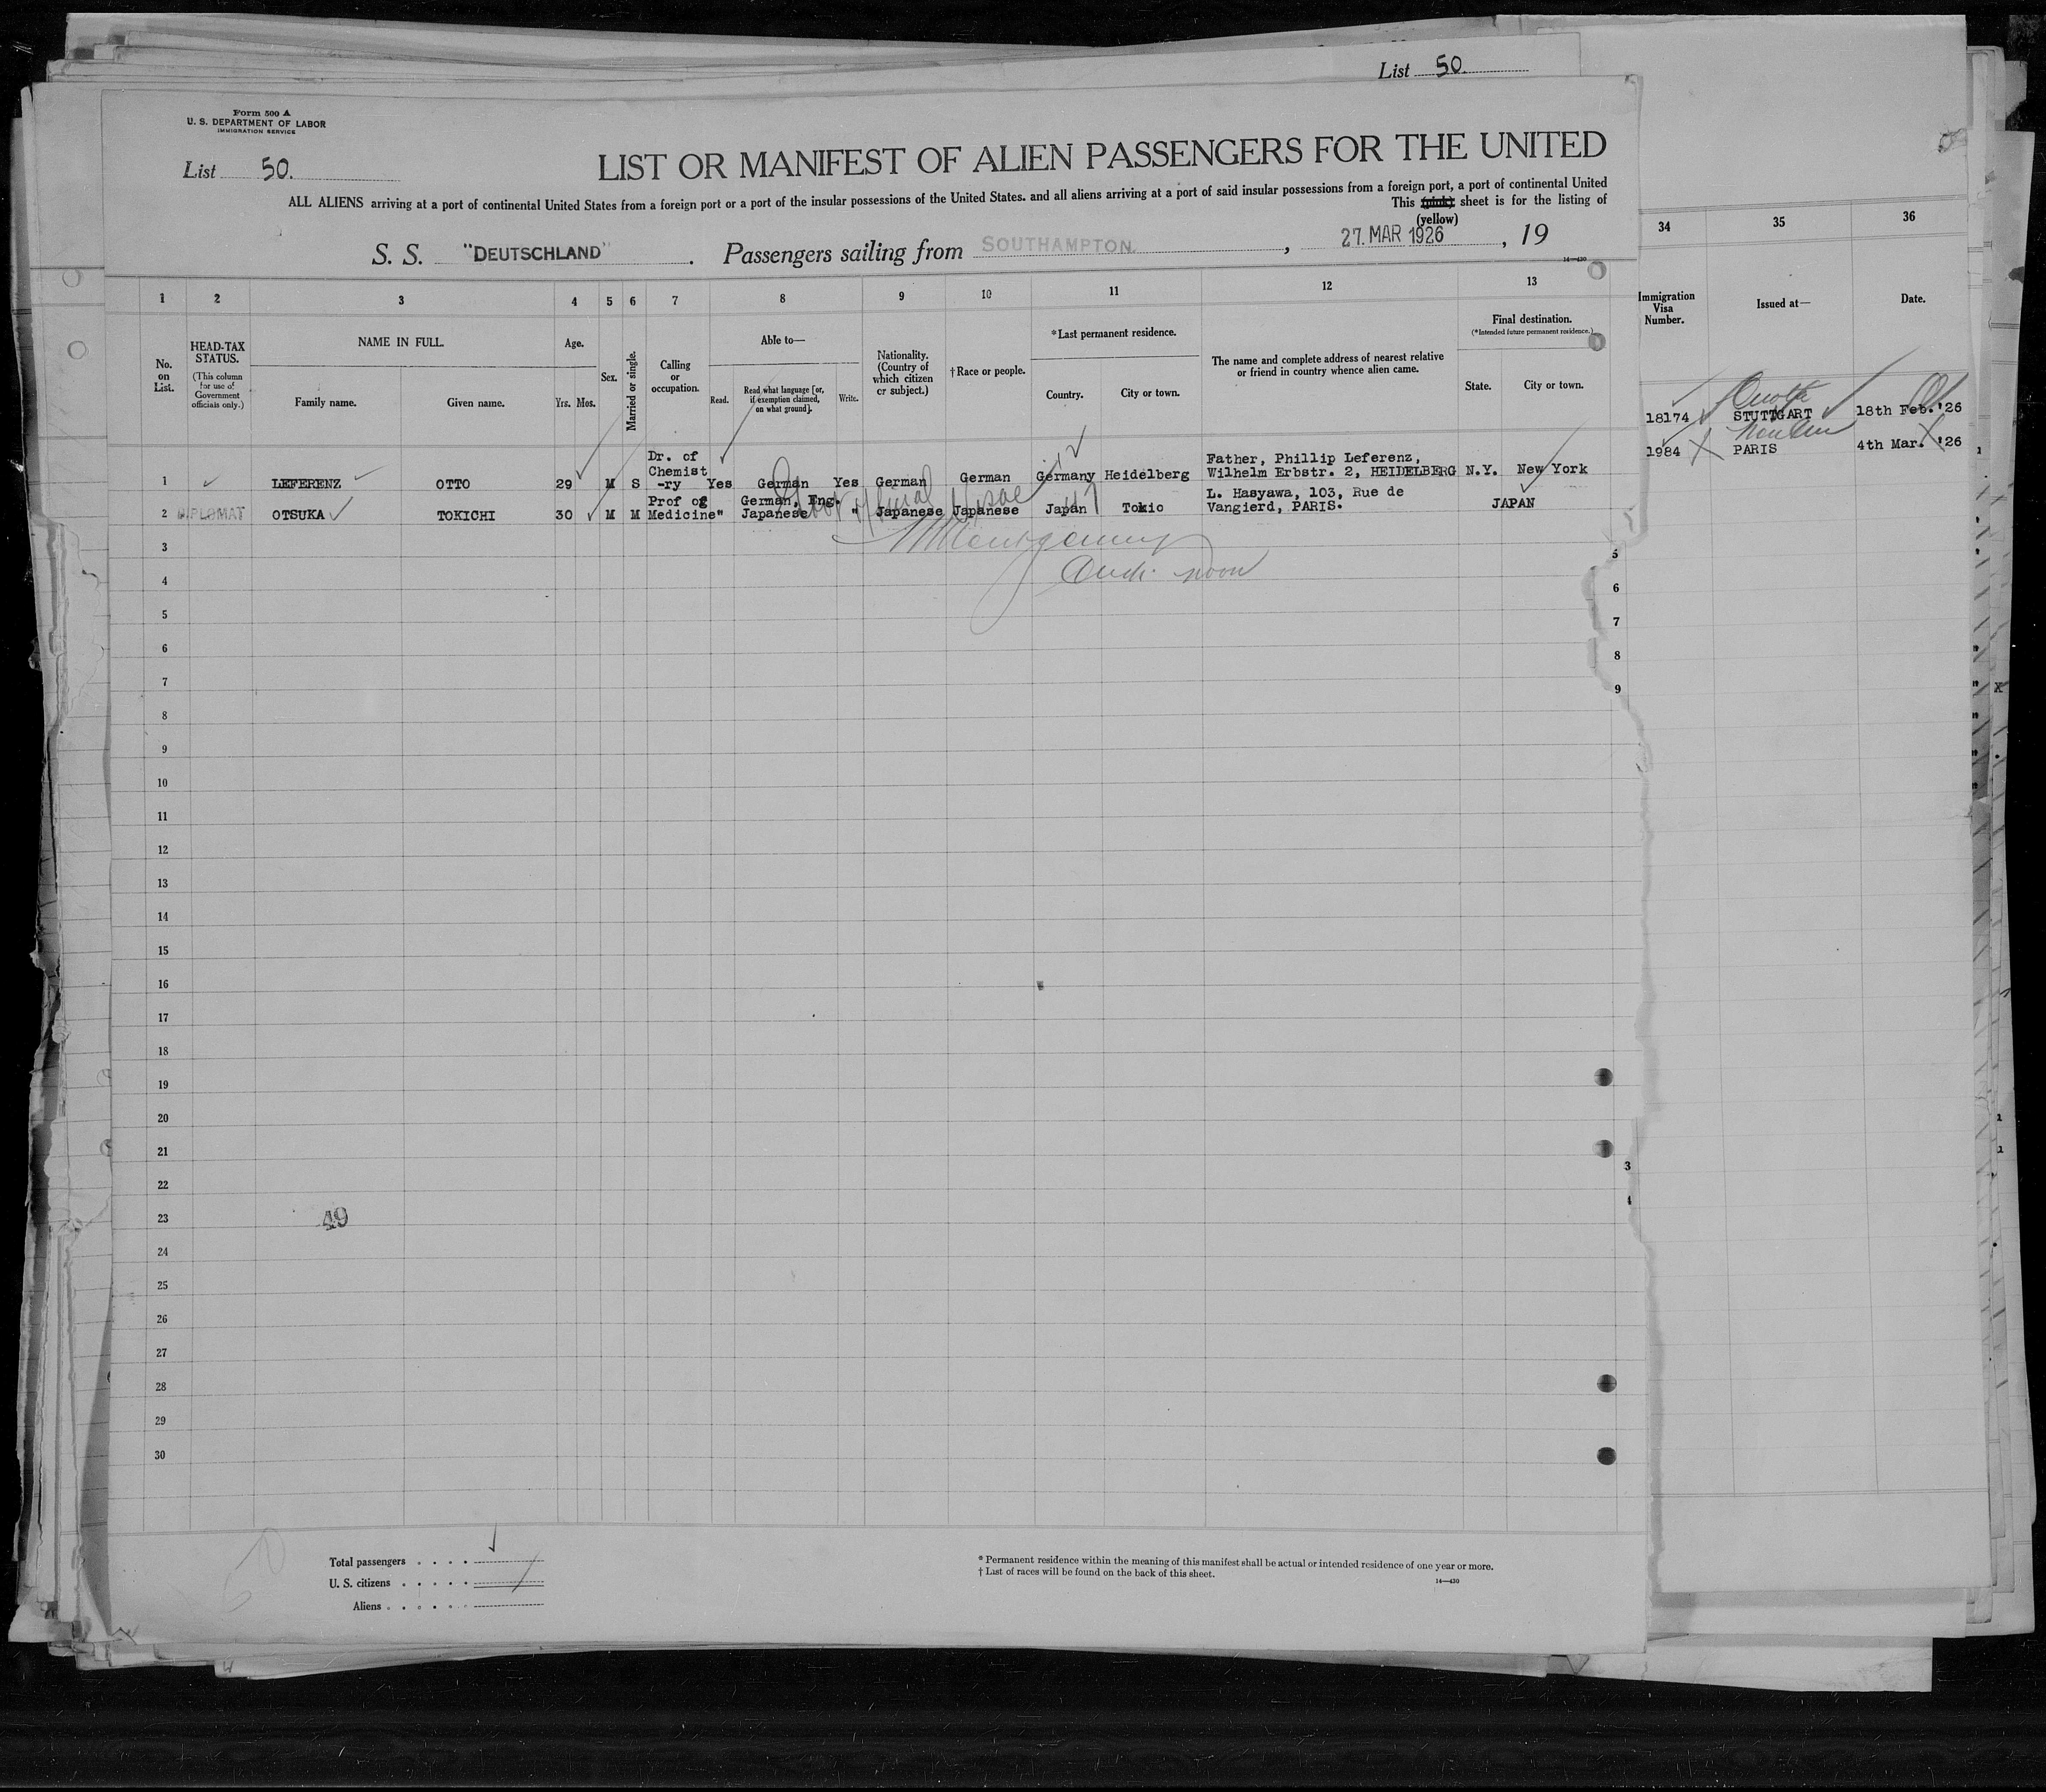 List 50.
Form 500 A
U. S. DEPARTMENT OF LABOR
IMMIGRATION SERVICE
List 50.
LIST OR MANIFEST OF ALIEN PASSENGERS FOR THE UNITED
ALL ALIENS arriving at a port of continental United States from a foreign port or a port of the insular possessions of the United States. and all aliens arriving at a port of said insular possessions from a foreign port, a port of continental United
This (pink) sheet is for the listing of
(yellow)
S. S. "DEUTSCHLAND" . Passengers sailing from SOUTHAMPTON. , 27. MAR 1926 , 19
14—430
1 2 3 4 5 6 7 8 9 10 11 12 13 34 35 36
No. on List.
HEAD-TAX STATUS.
(This column for use of Government officials only.)
NAME IN FULL.
Family name. Given name.
Age.
Yrs. Mos.
Sex.
Married or single.
Calling or occupation.
Able to—
Read. Read what language [or, if exemption claimed, on what ground]. Write.
Nationality. (Country of which citizen or subject.)
†Race or people.
*Last permanent residence.
Country. City or town.
The name and complete address of nearest relative or friend in country whence alien came.
Final destination.
(*Intended future permanent residence.)
State. City or town.
Immigration Visa Number.
Issued at—
Date.
Quota
18174 STUTTGART 18th Feb. '26
1984 PARIS 4th Mar. '26
1 LEFERENZ OTTO 29 M S Dr. of Chemist -ry Yes German Yes German German Germany Heidelberg Father, Phillip Leferenz, Wilhelm Erbstr. 2, HEIDELBERG N.Y. New York
2 DIPLOMAT OTSUKA TOKICHI 30 M M Prof of Medicine " German, Eng. Japanese " Japanese Japanese Japan Tokio L. Hasyawa, 103, Rue de Vangierd, PARIS. JAPAN
3
4
5
6
7
8
9
10
11
12
13
14
15
16
17
18
19
20
21
22
23 49
24
25
26
27
28
29
30
5
6
7
8
9
3
Total passengers
U. S. citizens
Aliens
* Permanent residence within the meaning of this manifest shall be actual or intended residence of one year or more.
† List of races will be found on the back of this sheet.
14—430